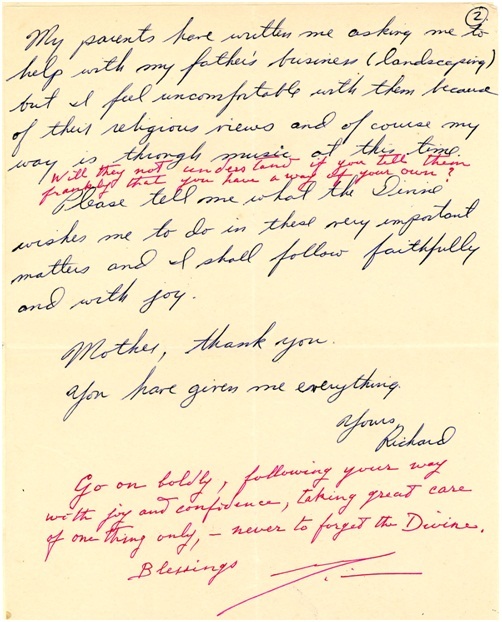 2
My parents have written me asking me to
help with my father's business (landscaping)
but I feel uncomfortable with them because
of their religious views and of course my
way is through music at this time.
Will they not understand if you tell them
frankly that you have a way of your own?
Please tell me what the Divine
wishes me to do in these very important
matters and I shall follow faithfully
and with joy.
Mother, thank you.
You have given me everything.
Yours,
Richard
Go on boldly, following your way
with joy and confidence, taking great care
of one thing only, – never to forget the Divine.
Blessings